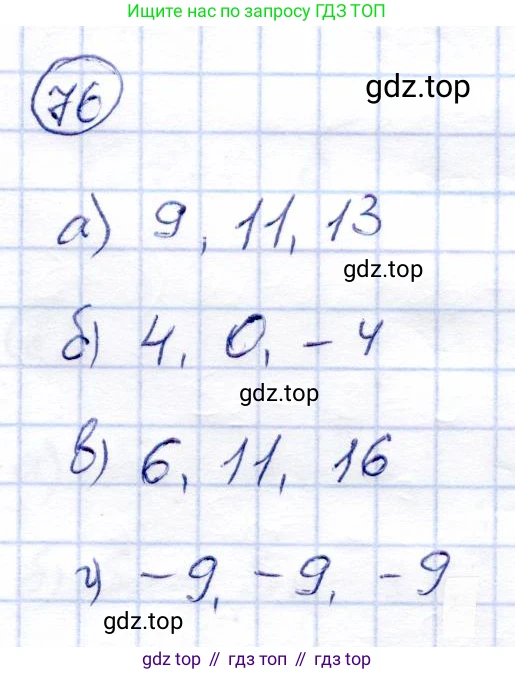 Ищите нас по запросу ГДЗ ТОП
76
gdz.top
а) 9, 11, 13
gdz.top
б) 4, 0, -4
gdz.top
в) 6, 11, 16
г) -9, -9, -9
gdz.top
gdz top // гдз топ // gdz.top